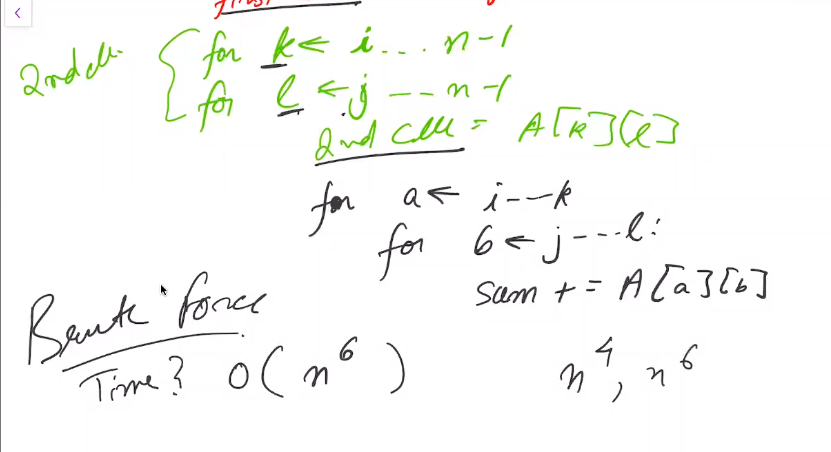 2nd cell
for k ← i ... n-1
for l ← j --- n-1
2nd cell = A[k][l]
for a ← i---k
for b ← j---l:
sum += A[a][b]
Brute force
Time? O(n^6)
n^4, n^6